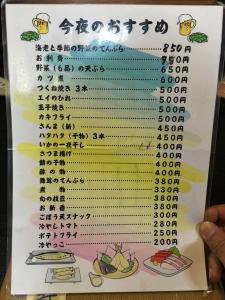 今夜のおすすめ
海老と季節の野菜のてんぷら 850円
お刺身 950円
野菜(6品)の天ぷら 650円
カツ煮 600円
つくね焼き 3本 500円
エイのひれ 500円
玉子焼き 500円
カキフライ 500円
さんま(新) 450円
ハタハタ(干物)3本 400円
いかの一夜干し 400円
さつま揚げ 400円
鯖の干物 400円
酢の物 400円
舞茸のてんぷら 380円
煮物 380円
旬の枝豆 380円
お新香 380円
ごぼう天スナック 300円
冷やしトマト 280円
ポテトフライ 250円
冷やっこ 200円